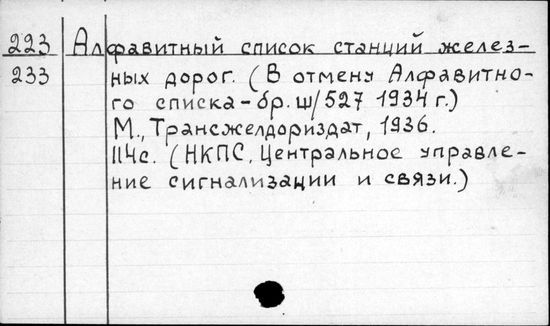 223 Алфавитный список станций желез-
233 ных дорог. (В отмену Алфавитно-
го списка-бр. ш/527 1934 г.)
М., Трансжелдориздат, 1936.
114с. (НКПС, Центральное управле-
ние сигнализации и связи.)